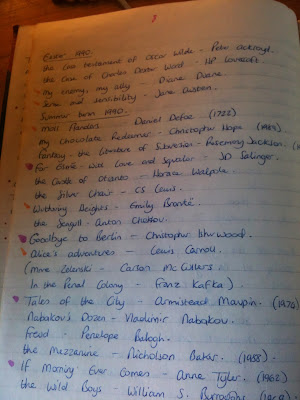 Easter 1990.
the Last testament of Oscar Wilde - Peter Ackroyd.
the Case of Charles Dexter Ward - HP Lovecraft.
My enemy, my ally - Diane Duane
Sense and sensibility - Jane Austen.
Summer term 1990.
Moll Flanders - Daniel Defoe (1722)
My Chocolate Redeemer - Christopher Hope
Fantasy - the Literature of Subversion - Rosemary Jackson.
For Esmé - with Love and Squalor - JD Salinger.
the Castle of Otranto - Horace Walpole.
the Silver Chair - CS Lewis.
Wuthering Heights - Emily Brontë.
the Seagull - Anton Chekov.
Goodbye to Berlin - Christopher Isherwood.
Alice's adventures - Lewis Carroll.
(Mme Zelenski - Carson McCullers
In the Penal Colony - Franz Kafka)
Tales of the City - Armistead Maupin.
Nabokov's Dozen - Vladimir Nabokov.
Freud - Penelope Balogh.
the Mezzanine - Nicholson Baker. (1988).
If Morning Ever Comes - Anne Tyler. (1962)
the Wild Boys - William S. Burroughs